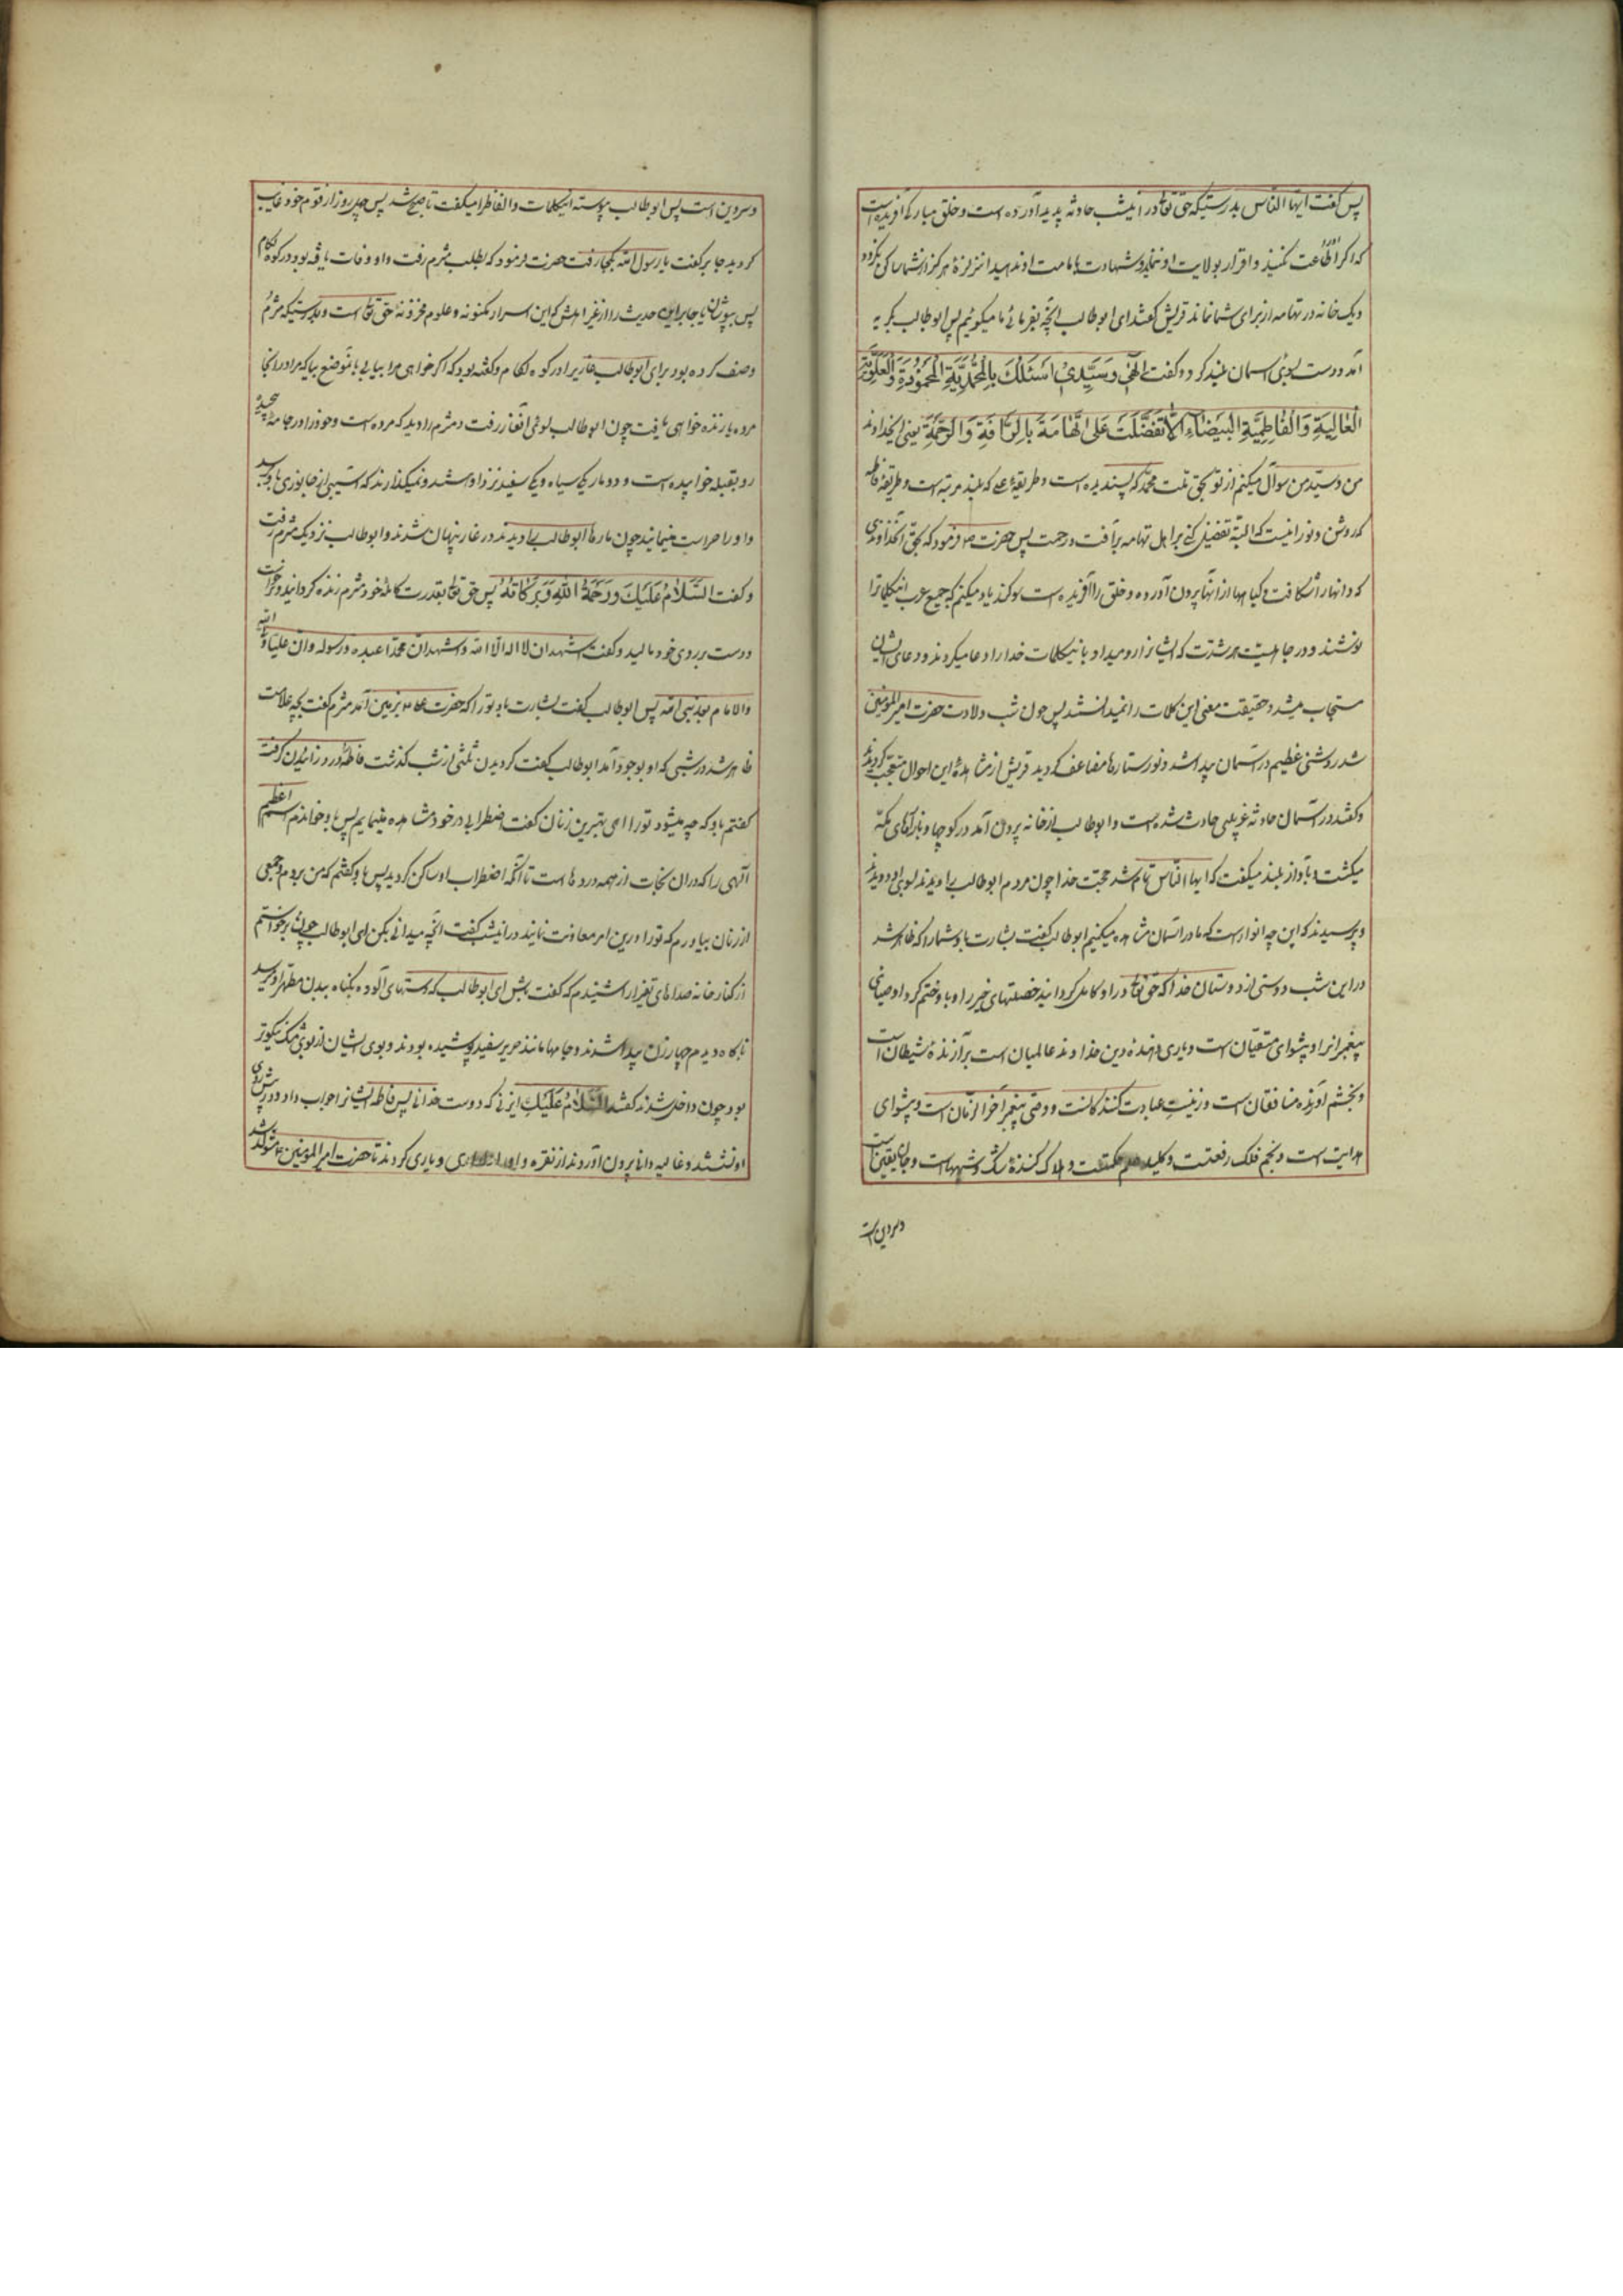 پس گفت ایها الناس بدرستیکه حق تعالی در این شب حادثه پدید آورده است و خلق مبارکی آفریده است
که اگر او را اطاعت نکنید و اقرار بولایت او ننمایید و شهادت بامامت او ندهید این زلزله هرگز از شما ساکن نگردد
و یک خانه در تهامه از برای شما نماند قریش گفتند ای ابوطالب آنچه بفرمائی ما میگوئیم پس ابوطالب بگریه
آمد و دست بسوی آسمان بلند کرد و گفت الهی وسیدی اسئلک بالمحمدیة المحمودة والعلویة
العالیة والفاطمیة البیضاء الا تفضلت علی التهامة بالرافة والرحمة یعنی ای خداوند
من و سید من سوال میکنم از تو بحق ملت محمد که پسندیده است و طریقهٔ علی که بلند مرتبه است و طریقهٔ فاطمه
که روشن و نورانیست که البته تفضل کنی بر اهل تهامه برأفت و رحمت پس حضرت فرمود که بحق آنخداوندی
که دانها را شکافت و گیاهها از آنها بیرون آورده و خلق را آفریده است سوگند یاد میکنم که جمیع عرب اینکلماترا
نوشتند و در جاهلیت هر شدت که ایشانرا رو میداد باینکلمات خدا را دعا میکردند و دعای ایشان
مستجاب میشد و حقیقت معنی این کلمات را نمیدانستند پس چون شب ولادت حضرت امیرالمومنین
شد روشنی عظیم در آسمان پیدا شد و نور ستارها مضاعف گردید قریش از مشاهدهٔ این احوال متعجب گردیدند
و گفتند در آسمان حادثهٔ غریبی حادث شده است و ابوطالب از خانه بیرون آمد در کوچها و بازارهای مکه
میگشت و بآواز بلند میگفت که ایها الناس تمام شد حجت خدا چون مردم ابوطالب را دیدند بسوی او دویدند
و پرسیدند که این چه انوار است که ما در آسمان مشاهده میکنیم ابوطالب گفت بشارت باد شما را که ظاهر شد
در این شب دوستی از دوستان خدا که حق تعالی در او کامل گردانید خصلتهای خیر را و باو ختم کرد اوصیای
پیغمبرانرا و پیشوای متقیان است و یاری دهندهٔ دین خداوند عالمیان است برآرندهٔ شیطان است
و بخشم آورنده منافقان است و زینت عبادت کنندگانست و وصی پیغمبر آخر الزمان است و پیشوای
هدایت است و نجم فلک رفعتست و کلید علم حکمتست و هلاک کنندهٔ شک و شبهه است و جان یقین است
و سر دین است
و سر دین است پس ابوطالب پیوسته اینکلمات و الفاظ را میگفت تا صبح شد پس چهل روز از قوم خود غایب
گردید جابر گفت یا رسول الله بکجا رفت حضرت فرمود که بطلب مثرم رفت و او وفات یافته بود در کوه لکام
پس بپوشان یا جابر این حدیث را از غیر اهلش که این اسرار مکنونه و علوم مخزونهٔ حق تعالی است و بدرستیکه مثرم
وصف کرده بود برای ابوطالب غاریرا در کوه لکام و گفته بود که اگر خواهی مرا بیابی بانموضع بیا که مرا در آنجا
مرده یا زنده خواهی یافت چون ابوطالب بسوی آنغار رفت و مثرم را دید که مرده است و خود را در جامهٔ پیچیده
رو بقبله خوابیده است و دو مار یکی سیاه و یکی سفید نزد او هستند و نمیگذارند که آسیبی از جانوری باو برسد
و او را حراست مینمایند چون مارها ابوطالب را دیدند در غار پنهان شدند و ابوطالب نزدیک مثرم رفت
و گفت السلام علیک ورحمة الله وبرکاته پس حق تعالی بقدرت کاملهٔ خود مثرم زنده گردانید و برخواست
و دست بر روی خود مالید و گفت اشهد ان لا اله الا الله واشهد ان محمدا عبده ورسوله وان علیا ولی الله
والامام بعد نبی الله پس ابوطالب گفت بشارت باد تو را که حضرت علی بزمین آمد مثرم گفت بچه علامت
ظاهر شد در شبی که او بوجود آمد ابوطالب گفت گردیدن ثلثی از شب گذشت فاطمه را درد زائیدن گرفت
گفتم باو که چه میشود تو را ای بهترین زنان گفت اضطرابی در خود مشاهده مینمایم پس باو خواندم اسم اعظم
الهی را که در آن نجات از همه دردها است تا آنکه اضطراب او ساکن گردید پس باو گفتم که من بروم و جمعی
از زنان بیاورم که تو را در این امر معاونت نمایند در اینشب گفت آنچه میدانی بکن ای ابوطالب چون برخواستم
از کنار خانه صدای شنیدم که گفت باش ای ابوطالب که دستهای آلوده بگناه ببدن مطهر او نرسد
ناگاه دیدم چهار زن پیدا شدند و جامها مانند حریر سفید پوشیده بودند و بوی ایشان از بوی مشک نیکوتر
بود چون داخل شدند گفتند السلام علیک ای زنی که دوست خدائی پس فاطمه ایشانرا جواب داد و در پیش روی
او نشستند و غالیه دانی بیرون آوردند از نقره و او را یاری کردند تا حضرت امیر المؤمنین متولد شد